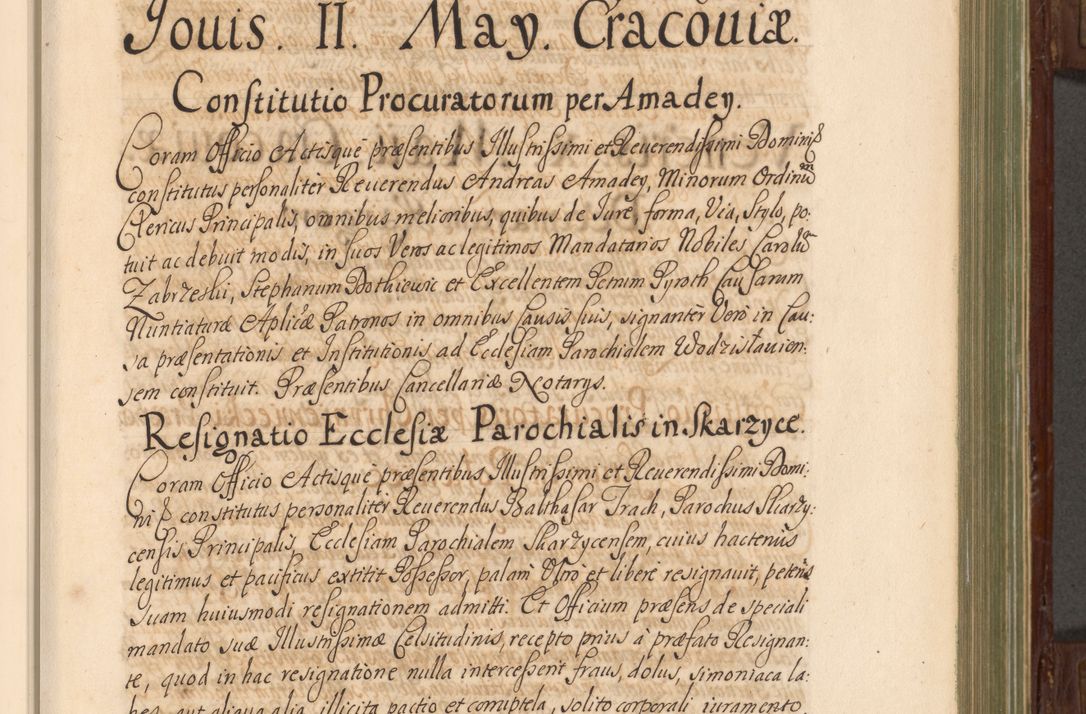 Jouis. II. May. Cracouiæ.
Conſtitutio Procuratorum per Amadey.
Coram Officio Actisquè præſentibus Illuſtriſsimi et Reuerendiſsimi Domini
conſtitutus perſonalitèr Reuerendus Andreas Amadey, Minorum Ordinũ
Clericus Principalis, omnibus melioribus, quibus de Iurè, forma, Via, Stylo, po:
tuit ac debuit modis, in ſuos Veros ac legitimos Mandatarios Nobiles Carolũ
Zabrzeski, Stephanum Bothiewic et Excellentem Petrum Pyroth Cauſarum
Nuntiaturæ Aplicæ Patronos in omnibus Causis ſuis, signantèr Verò in Cau:
sa præſentationis et Inſtitutionis ad Eccleſiam Parochialem Wodzisłauien:
sem conſtituit. Præſentibus Cancellariæ Notarys.
Reſignatio Eccleſiæ Parochialis in Skarzyce.
Coram Officio Actisquè præſentibus Illuſtriſsimi et Reuerendiſsimi Domi:
ni conſtitutus perſonalitèr Reuerendus Balthaſar Trach, Parochus Skarzy:
cenſis Principalis, Eccleſiam Parochialem Skarzycenſem, cuius hactenùs
legitimus et pacificus extitit Poſseſsor, palam Vltrò et liberè resignauit, petens
suam huiusmodi reſignationem admitti. Et Officium præſens de speciali
mandato suæ Illuſtriſsimæ Celſitudinis, recepto priùs à præfato Reſignan:
te, quod in hac resignatione nulla interceſserit fraus, dolus, simoniaca la:
bes, aut aliqua alia illicita pactio et corruptela, ſolito corporali iuramento,